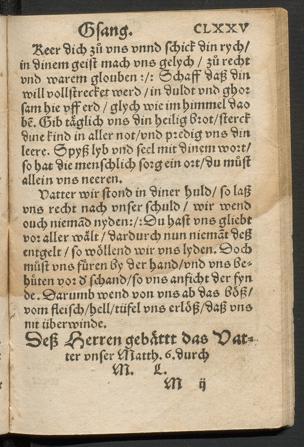 Gsang. CLXXV
Keer dich zů vns vnnd schick din rych/
in dinem geist mach vns gelych / zů recht
vnd warem glouben :/: Schaff daß din
will vollstrecket werd / in duldt vnd ghor
sam hie vff erd / glych wie im himmel dao
bē. Gib täglich vns din heilig brot/sterck
dine kind in aller not/vnd predig vns din
leere. Spyß lyb vnd seel mit dinem wort/
so hat die menschlich sorg ein ort/du můst
allein vns neeren.
Vatter wir stond in diner huld/ so laß
vns recht nach vnser schuld / wir wend
ouch niemād nyden:/:Du hast vns gliebt
vor aller wält / dardurch nun niemāt deß
entgelt / so wöllend wir vns lyden. Doch
můst vns füren by der hand/vnd vns be-
hüten vor d' schand/so vns anficht der fyn
de. Darumb wend von vns ab das böß/
vom fleisch/hell/tüfel vns erlöß/daß vns
nit überwinde.
Deß Herren gebättt das Vat-
ter vnser Matth. 6. durch
M. L.
M ij